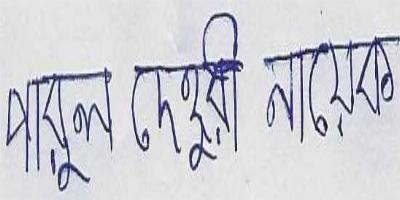 পারুল দেহুরী নায়েক